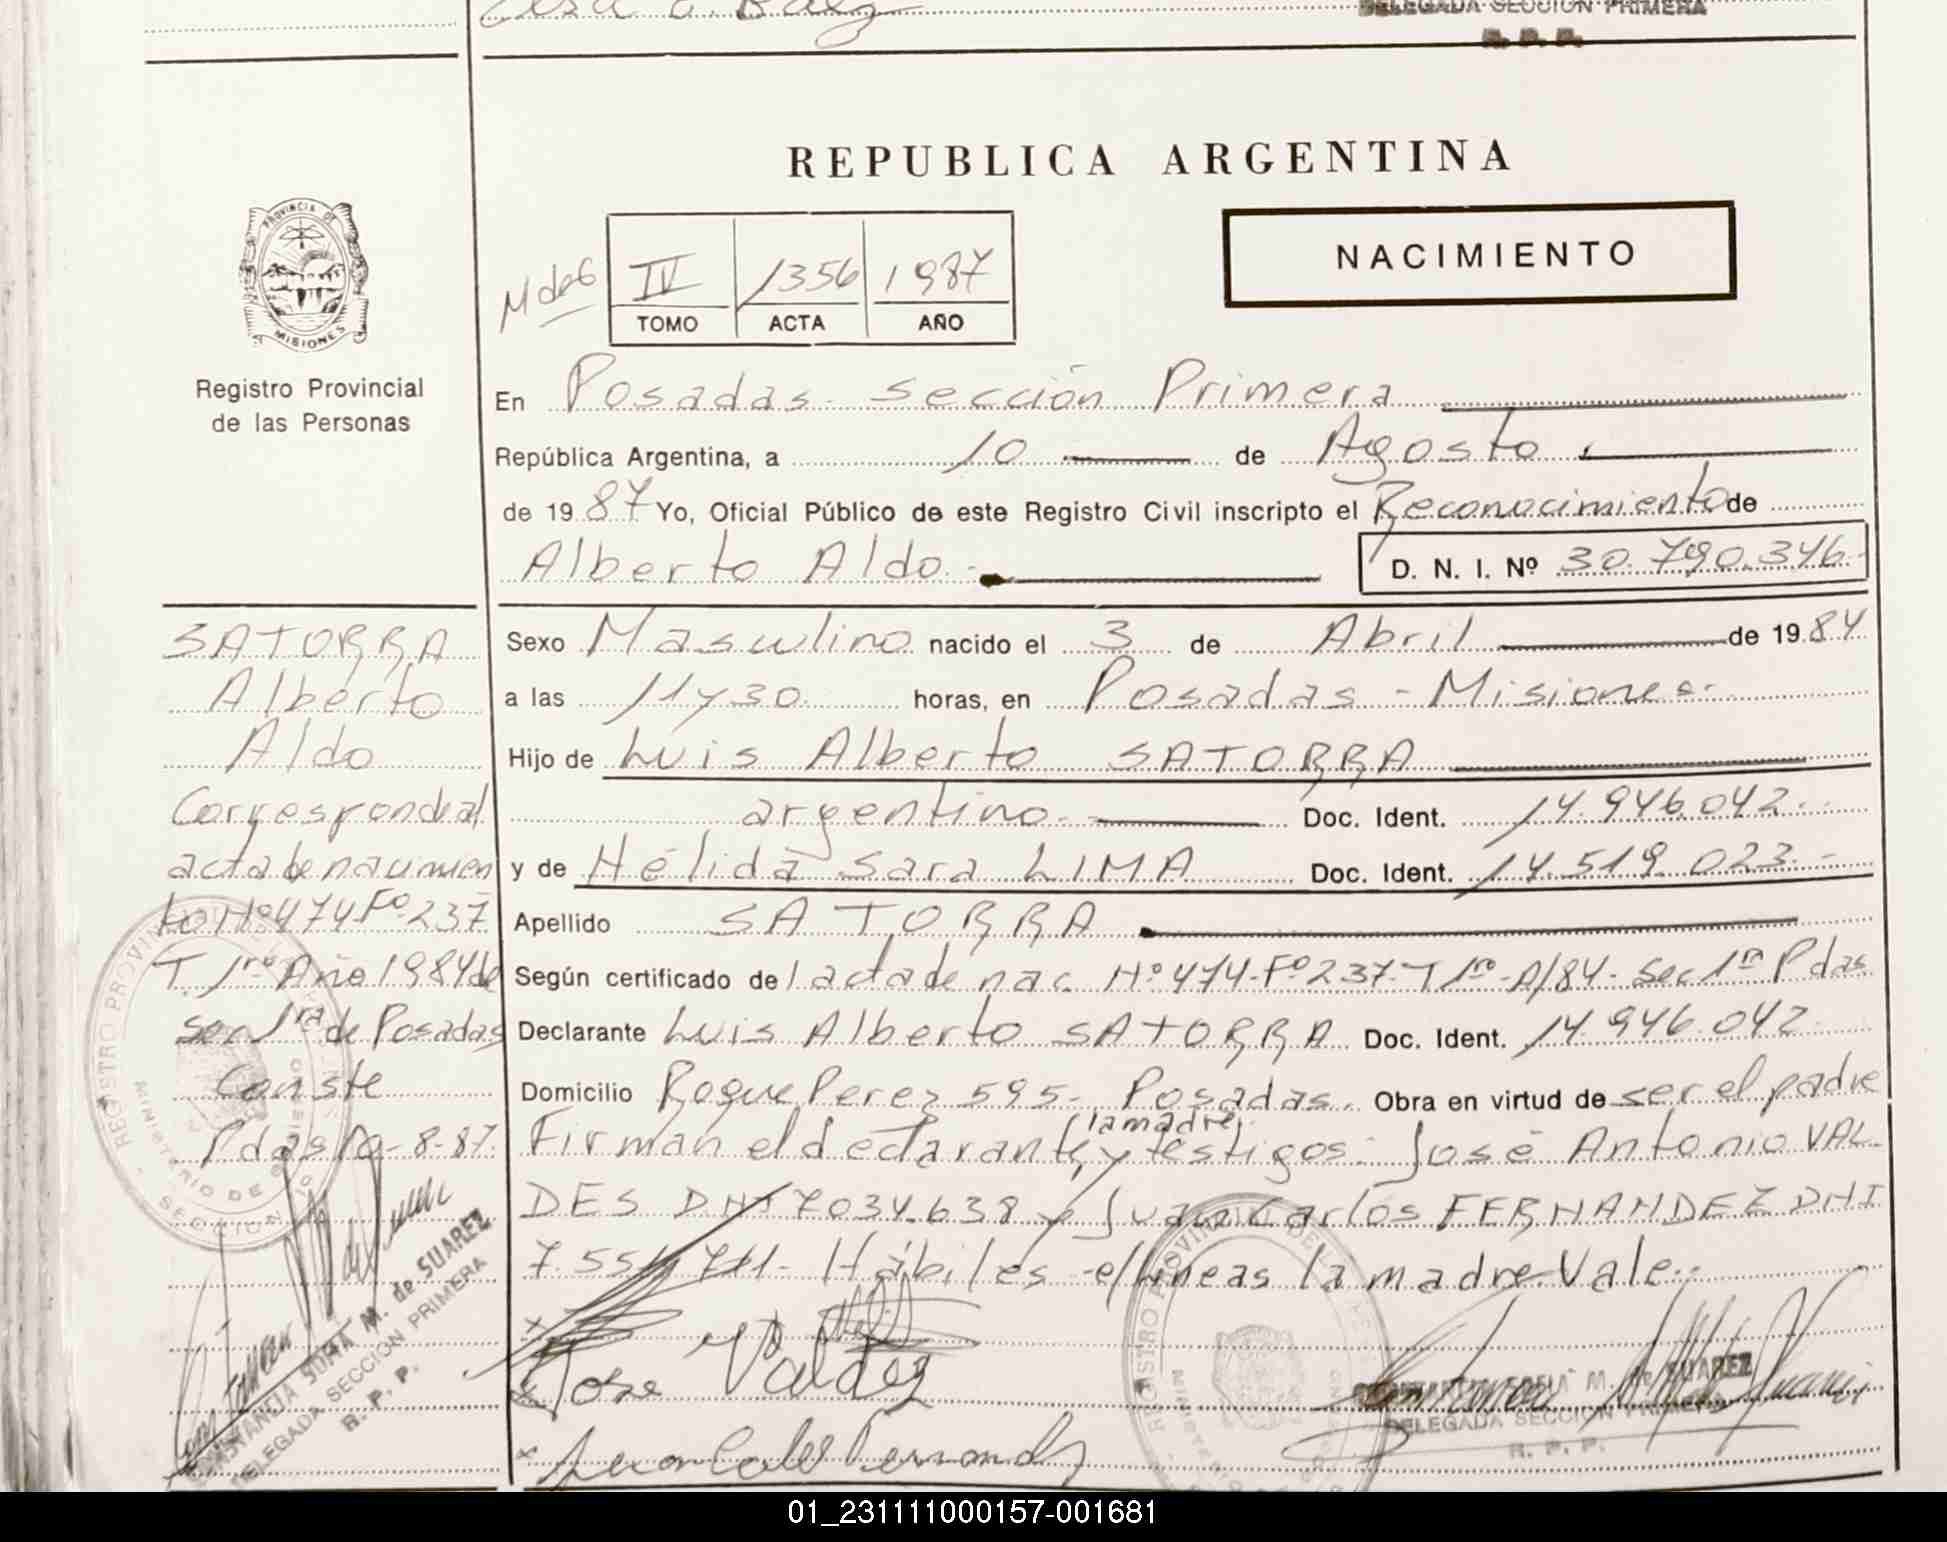 DELEGADA SECCION PRIMERA
R. P. P.
REPUBLICA ARGENTINA
PROVINCIA DE
MISIONES
Registro Provincial
de las Personas
IV 1356 1987
TOMO ACTA AÑO
NACIMIENTO
En Posadas Sección Primera
República Argentina, a 10 de Agosto
de 1987 Yo, Oficial Público de este Registro Civil inscripto el Reconocimiento de
Alberto Aldo.- D. N. I. Nº 30.790.346.-
SATORRA
Alberto
Aldo
Corresponde al
acta de nacimien
to Nº 474. Fº 237
T. 1ro Año 1984 de
Sec 1ra de Posadas
Conste
Pdas 10-8-87.
CONSTANCIA SOFIA M. de SUAREZ
DELEGADA SECCION PRIMERA
R. P. P.
Sexo Masculino nacido el 3 de Abril de 1984
a las 11 y 30 horas, en Posadas - Misiones.-
Hijo de Luis Alberto SATORRA
argentino.- Doc. Ident. 14.946.042.-
y de Hélida Sara LIMA Doc. Ident. 14.519.023.-
Apellido SATORRA
Según certificado de l acta de nac. Nº 474-Fº 237-T 1ro-A/84-Sec 1ra Pdas
Declarante Luis Alberto SATORRA Doc. Ident. 14.946.042
Domicilio Roque Perez 595- Posadas. Obra en virtud de ser el padre
la madre
Firman el declarante, y testigos: José Antonio VAL-
DES DNI 7034.638 y Juan Carlos FERNANDEZ DNI
Hábiles -e/lineas la madre-Vale.-
Jose Valdez
Juan Carlos Fernandez
M. de SUAREZ
DELEGADA SECCION PRIMERA
R. P. P.
01_231111000157-001681